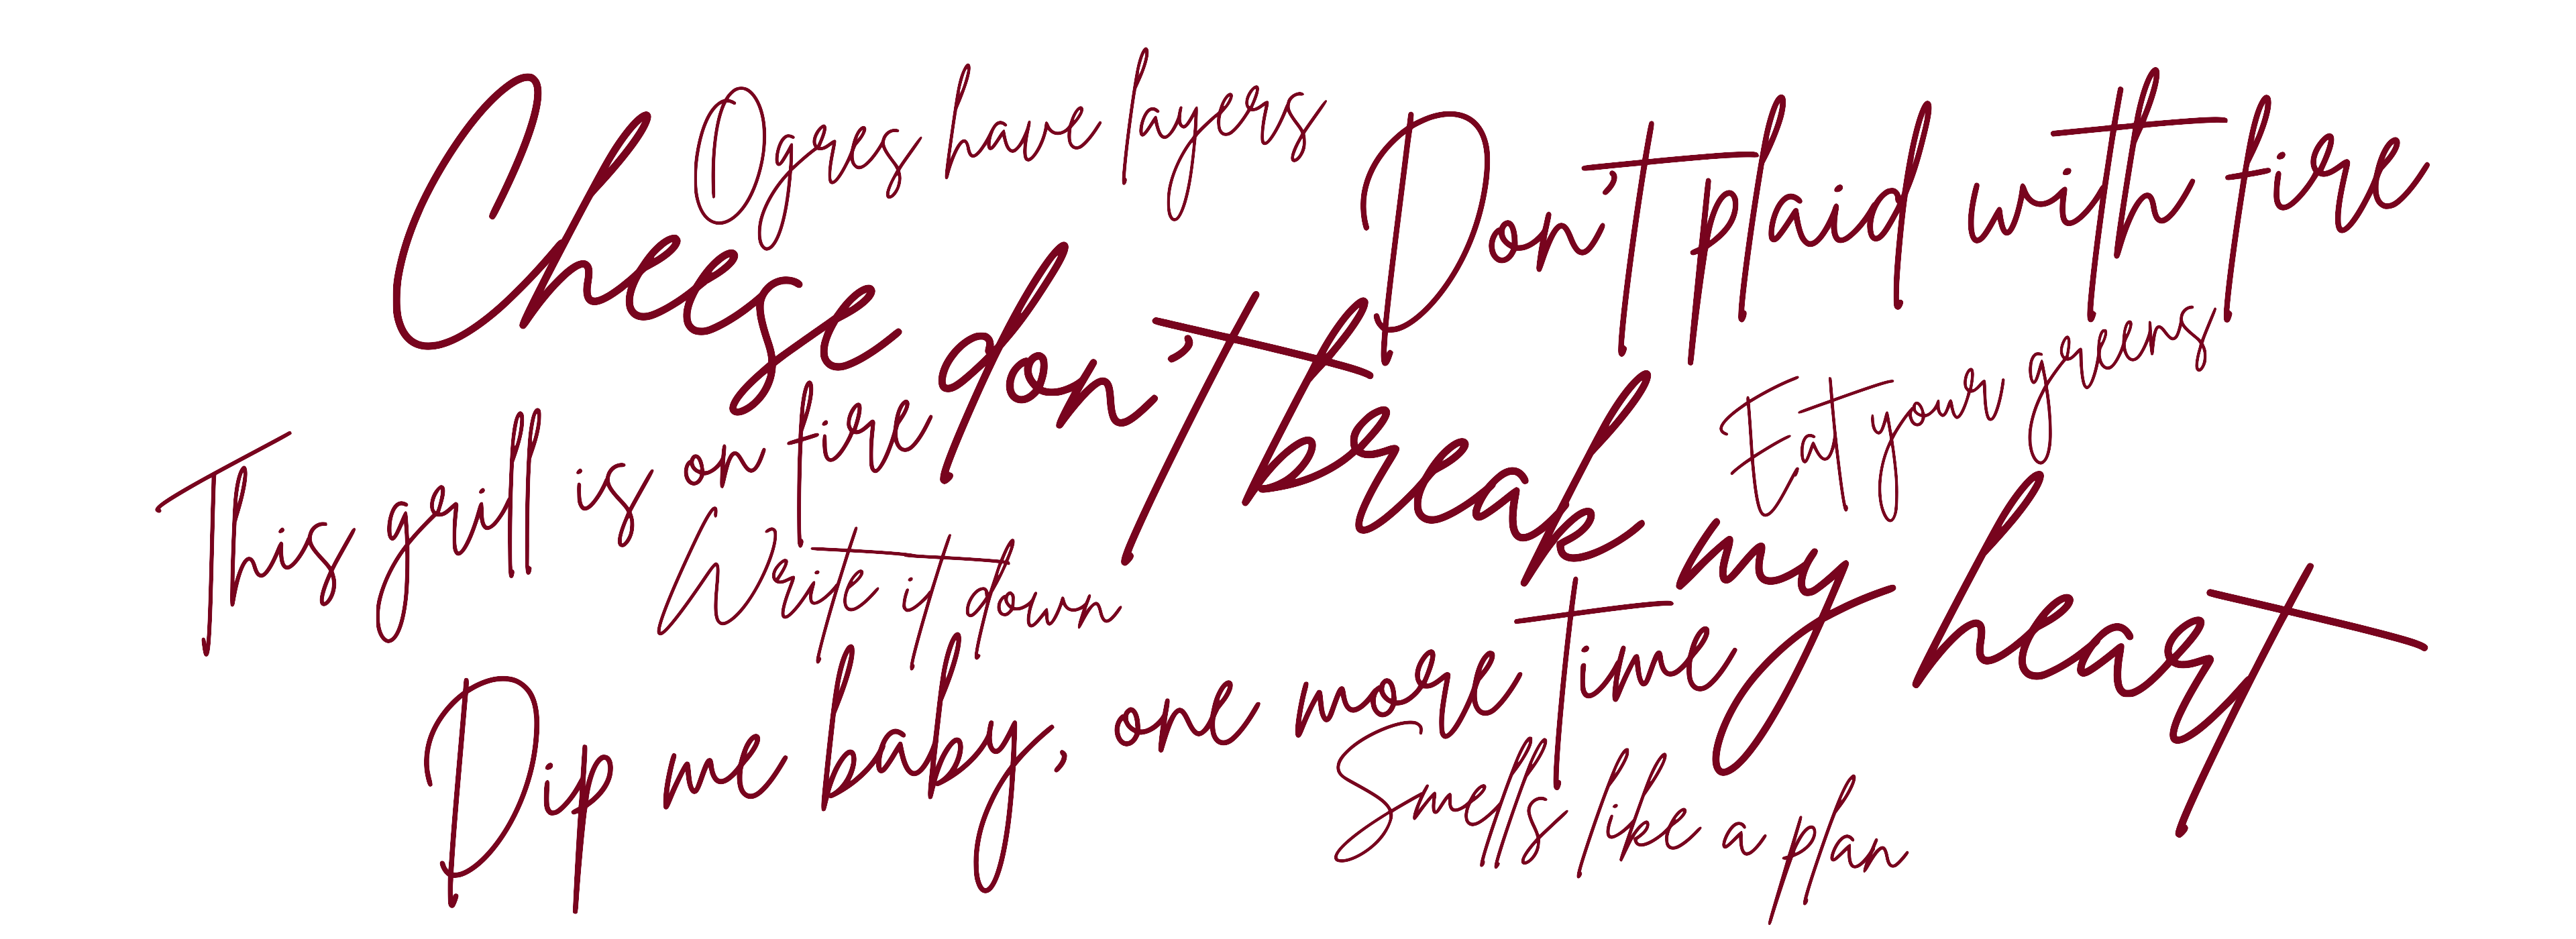 Ogres have layers
Don't plaid with fire
Cheese don't break my heart
Eat your greens
This grill is on fire
Write it down
Dip me baby, one more time
Smells like a plan